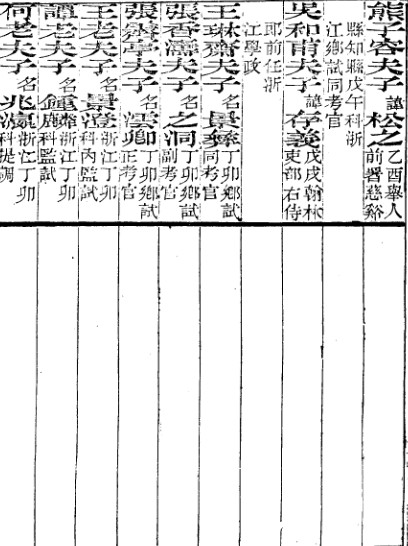 熊子容夫子 諱松之 乙酉舉人前署慈谿
縣知縣戊午科浙江鄉試同考官
吳和甫夫子 諱存義 戊戌翰林吏部右侍
郎前任浙江學政
王琳齋夫子 名景彝 丁卯鄉試同考官
張香濤夫子 名之洞 丁卯鄉試副考官
張 亭夫子 名澐卿 丁卯鄉試正考官
王老夫子 名景澄 浙江丁卯科內監試
譚老夫子 名鍾麟 浙江丁卯科監試
何老夫子 名兆瀛 浙江丁卯科提調